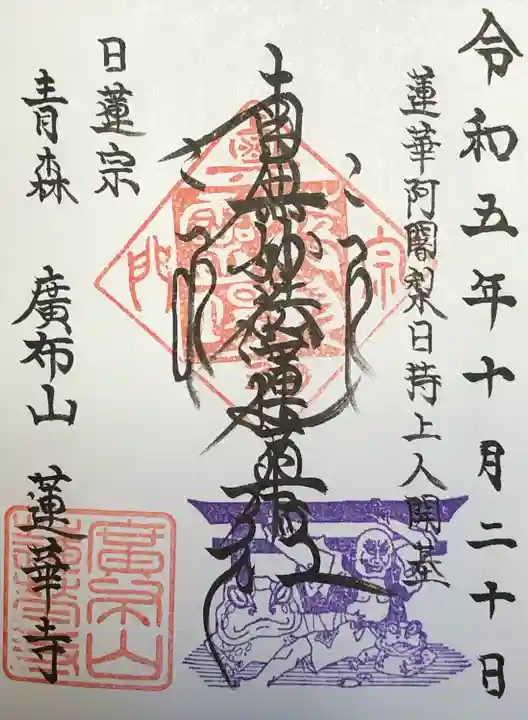 令和五年十月二十日
蓮華阿闍梨日持上人開基
南無妙法蓮華経
日蓮宗
青森 廣布山 蓮華寺
宗
門
廣布山